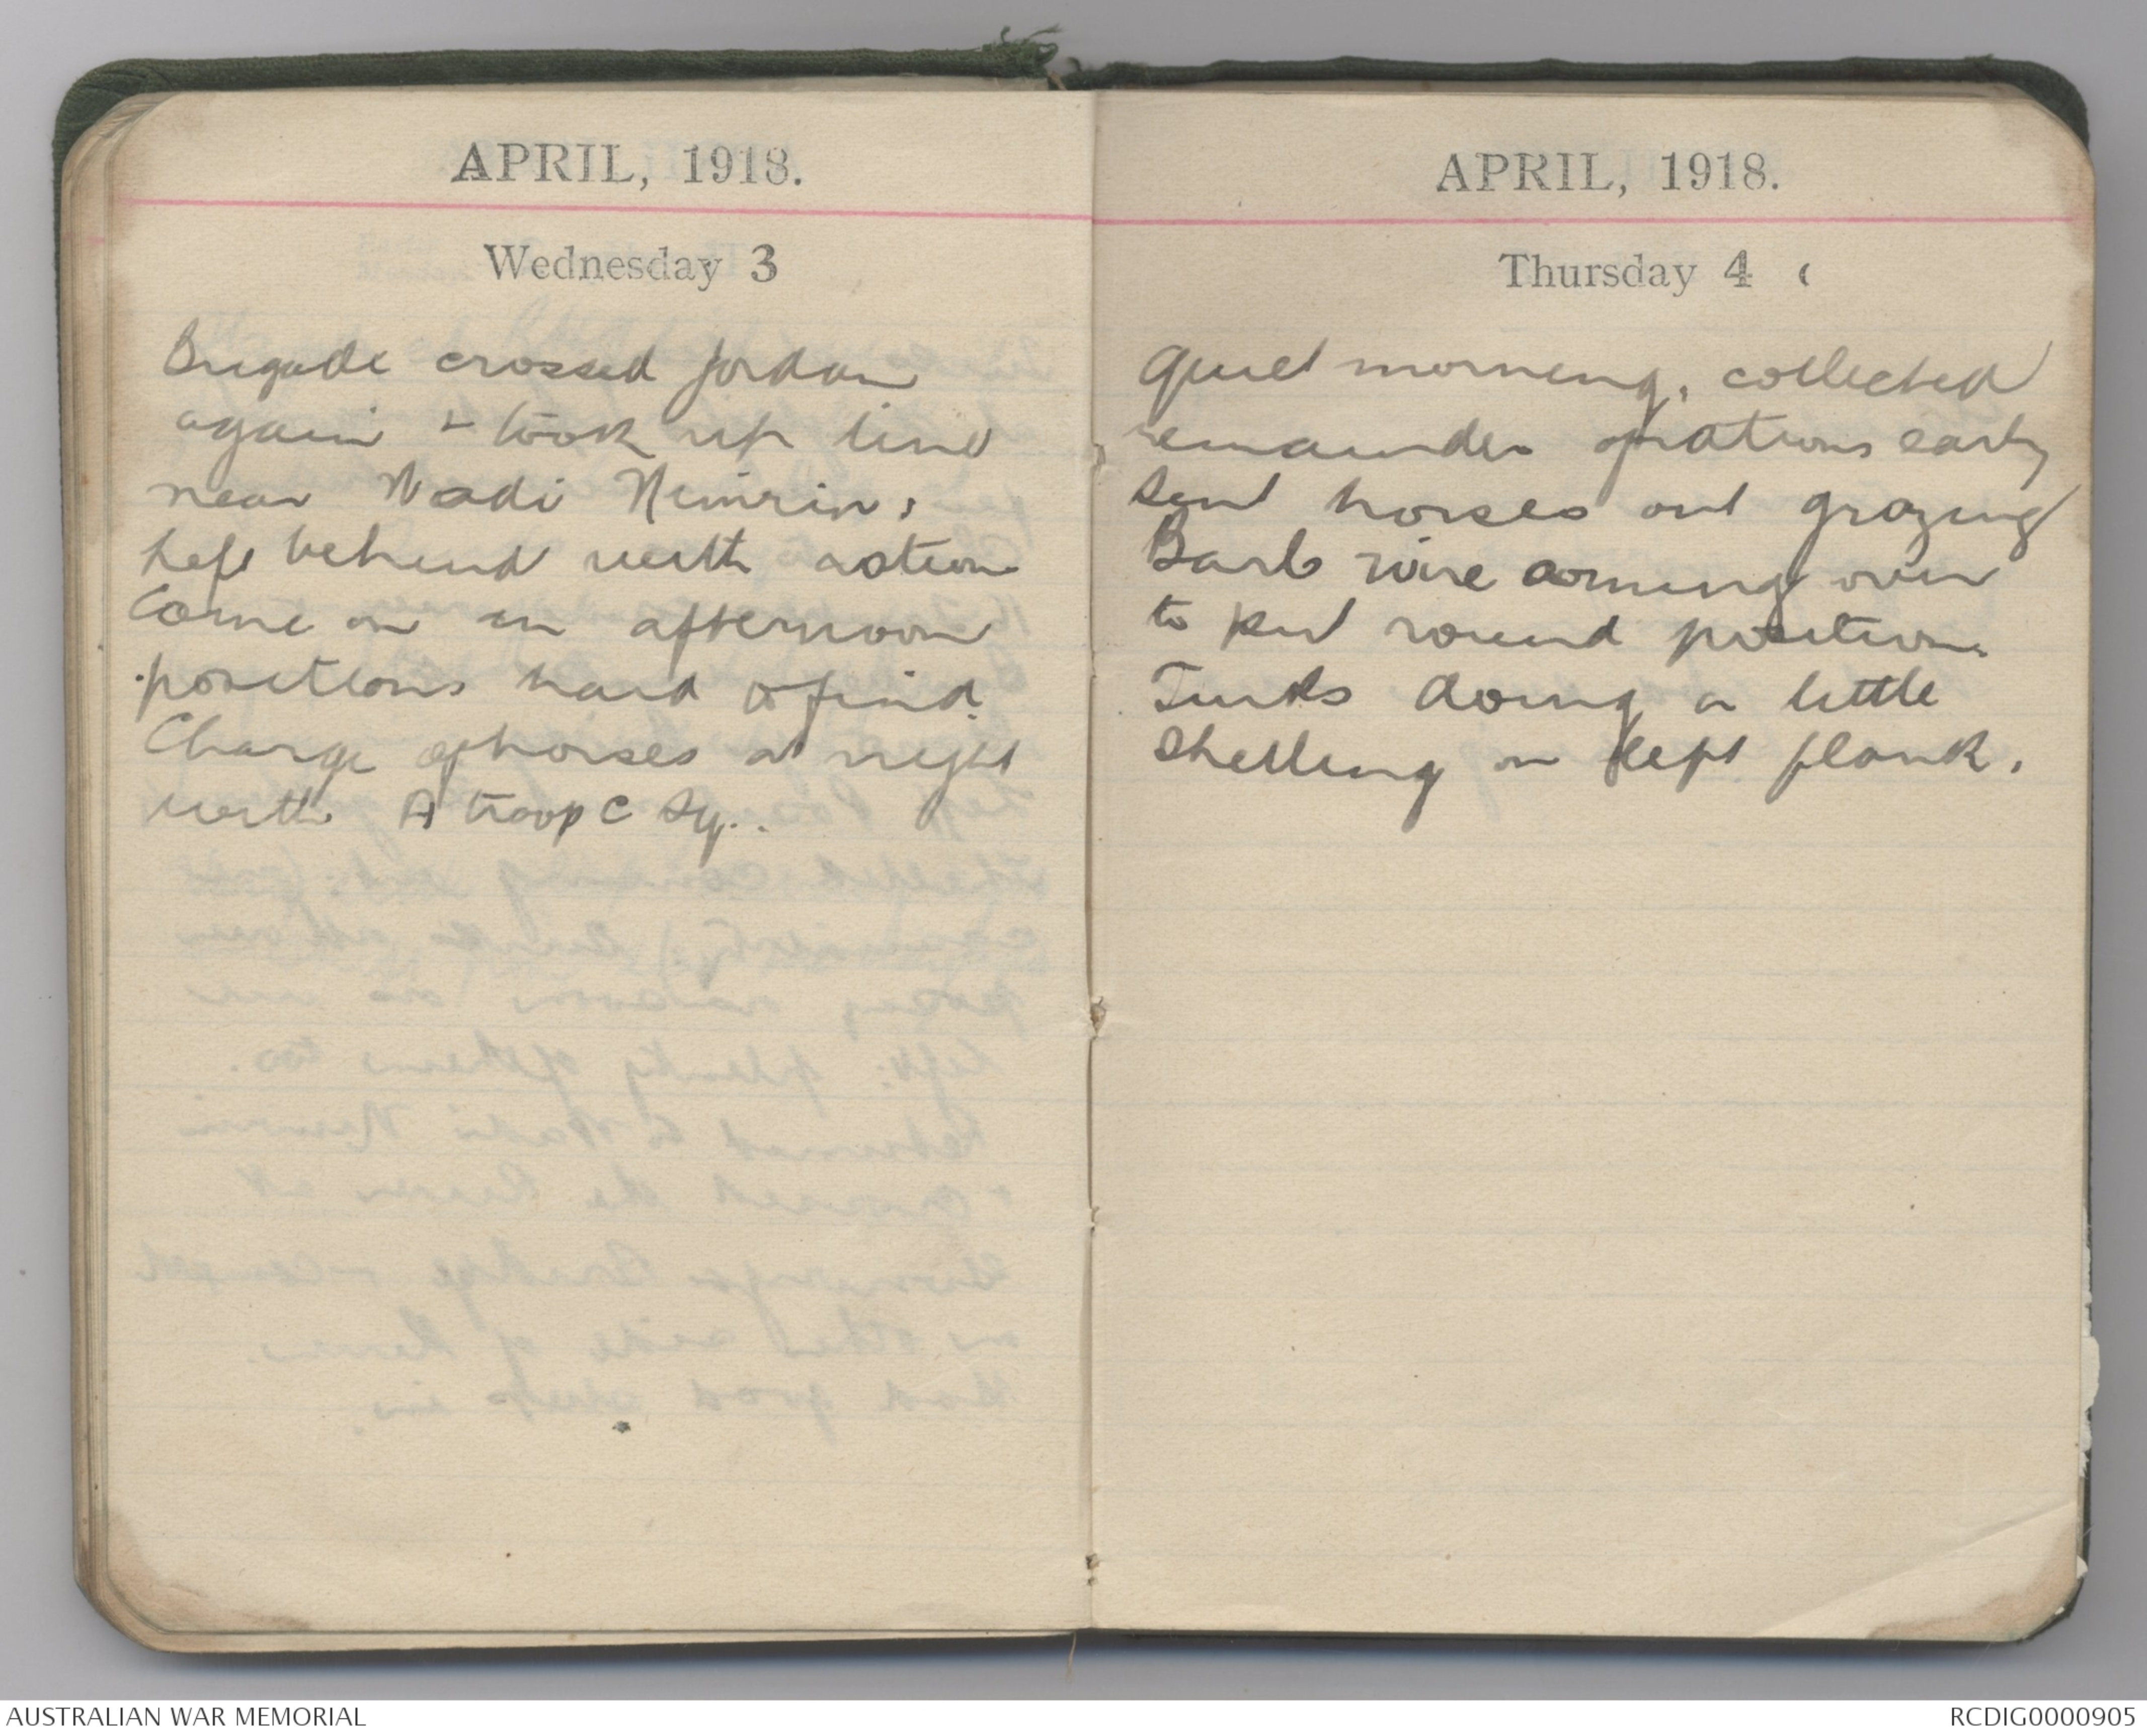 APRIL, 1918.
Wednesday 3
Brigade crossed Jordan
again + took up line
near Wadi Nimrin,
left behind with
Come on in afternoon
positions hard to find.
Charge of horses at night
with A troop C Sq..
APRIL, 1918.
Thursday 4
Quiet morning, collected
remainder of rations early
Sent horses out grazing
Barb wire coming over
to put round position.
Turks doing a little
Shelling on left flank.
AUSTRALIAN WAR MEMORIAL
RCDIG0000905